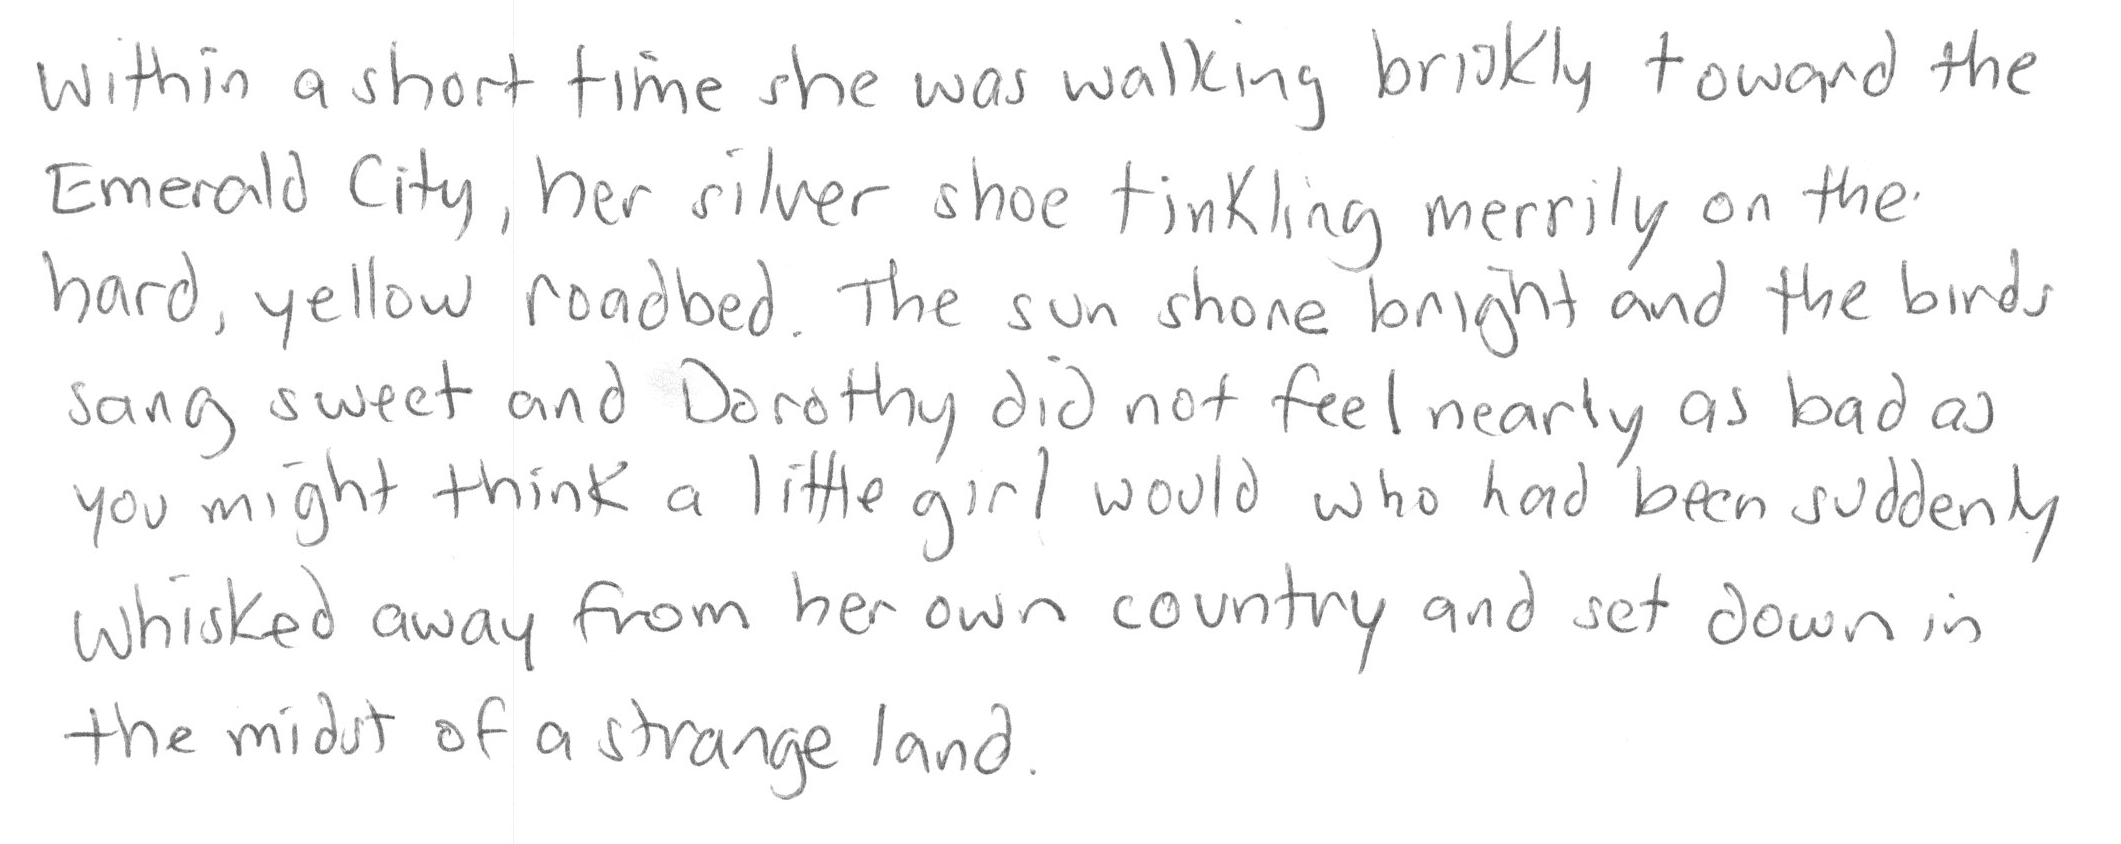 Within a short time she was walking briskly toward the
Emerald City, her silver shoe tinkling merrily on the
hard, yellow roadbed. The sun shone bright and the birds
sang sweet and Dorothy did not feel nearly as bad as
you might think a little girl would who had been suddenly
whisked away from her own country and set down in
the midst of a strange land.